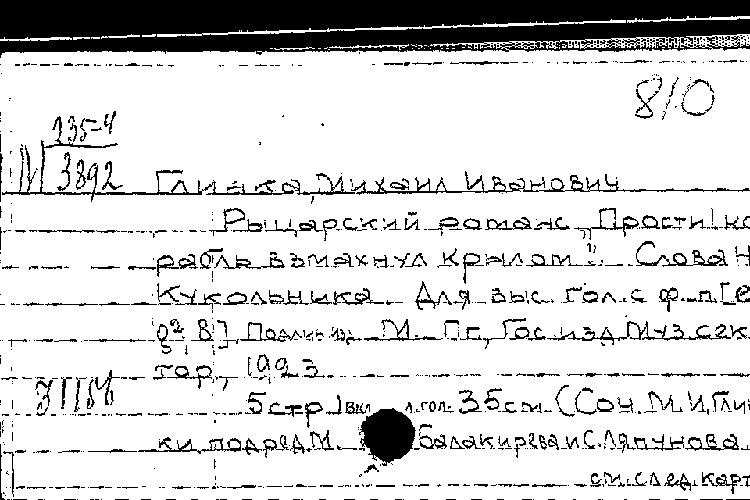 8/0
235-4
3892
Глинка, Михаил Иванович
Рыцарский романс „Прости! ко
рабль взмахнул крылом". Слова Н
Кукольника. Для выс. гол. с ф.-п. [e
g² 8] М. Пг, Гос изд Муз сек
тор, 1923
5 стр. вкл 35 см. (Соч. М. И. Глин
ки под ред М. Балакирева и С. Ляпунова.
см. след. карт